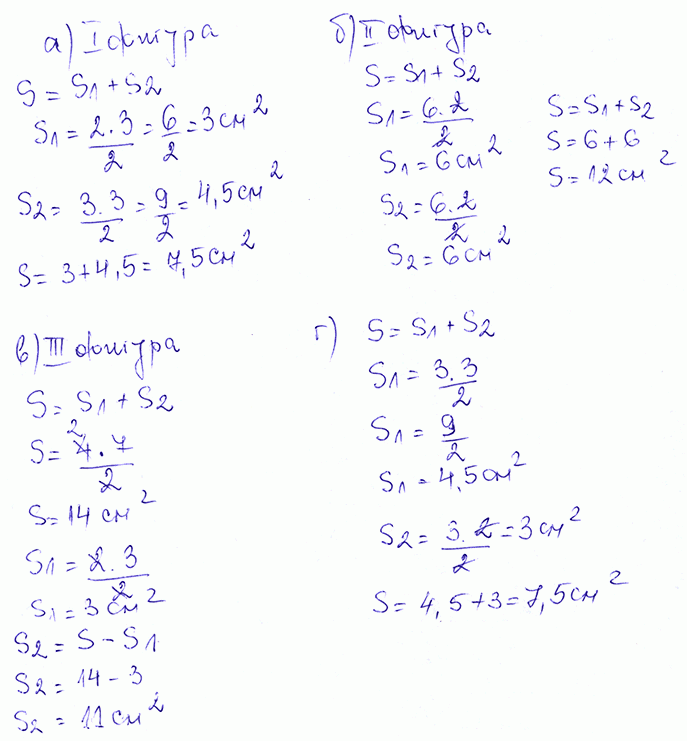 а) I фигура
S = S1 + S2
S1 = 2.3/2 = 6/2 = 3 см²
S2 = 3.3/2 = 9/2 = 4,5 см²
S = 3 + 4,5 = 7,5 см²
б) II фигура
S = S1 + S2
S1 = 6.2/2
S1 = 6 см²
S2 = 6.2/2
S2 = 6 см²
S = S1 + S2
S = 6 + 6
S = 12 см²
в) III фигура
S = S1 + S2
2
S = 4.7/2
S = 14 см²
S1 = 2.3/2
S1 = 3 см²
S2 = S - S1
S2 = 14 - 3
S2 = 11 см²
г) S = S1 + S2
S1 = 3.3/2
S1 = 9/2
S1 = 4,5 см²
S2 = 3.2/2 = 3 см²
S = 4,5 + 3 = 7,5 см²